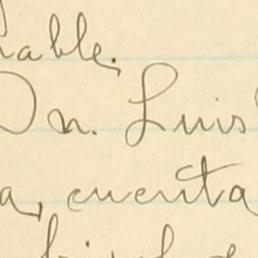 able.
Dn. Luis
a, cuenta